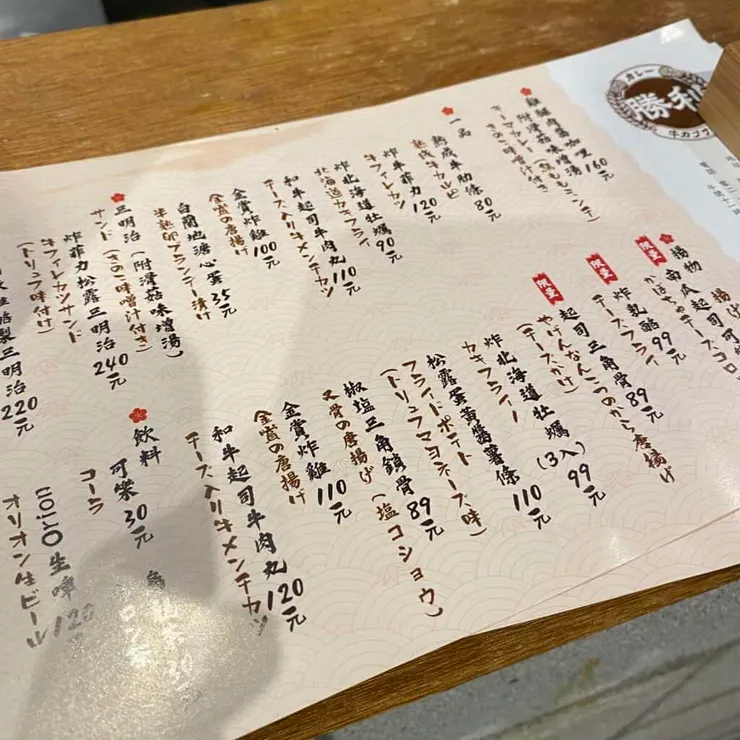 カレー
勝利
牛カツ
雞腿肉醬咖哩 160元
附滑菇味噌湯
(きのこ味噌汁付き)
一品
熟成牛肋條 80元
熟成牛カルビ
炸牛菲力 120元
牛フィレカツ
炸北海道牡蠣 90元
北海道カキフライ
和牛起司牛肉丸 110元
チーズ入り牛メンチカツ
金賞炸雞 100元
金賞の唐揚げ
白蘭地溏心蛋 35元
半熟卵ブランデー漬け
三明治 (附滑菇味增湯)
サンド (きのこ味噌汁付き)
炸菲力松露三明治 240元
牛フィレカツサンド
(トリュフ味付け)
三明治 220元
揚物
揚げ
南瓜起司可
かぼちゃチーズコロ
限量
炸乳酪 99元
チーズフライ
限量
起司三角骨 89元
やげんなんこつのから唐揚げ
(チーズかけ)
限量
炸北海道牡蠣 (3入) 99元
カキフライ
松露蛋黃醬薯條 110元
フライドポテト
(トリュフマヨネーズ味)
椒塩三角鎖骨 89元
叉骨の唐揚げ (塩コショウ)
金賞炸雞 110元
金賞の唐揚げ
和牛起司牛肉丸 120元
チーズ入り牛メンチカツ
飲料
可樂 30元
コーラ
Orion生啤 120
オリオン生ビール